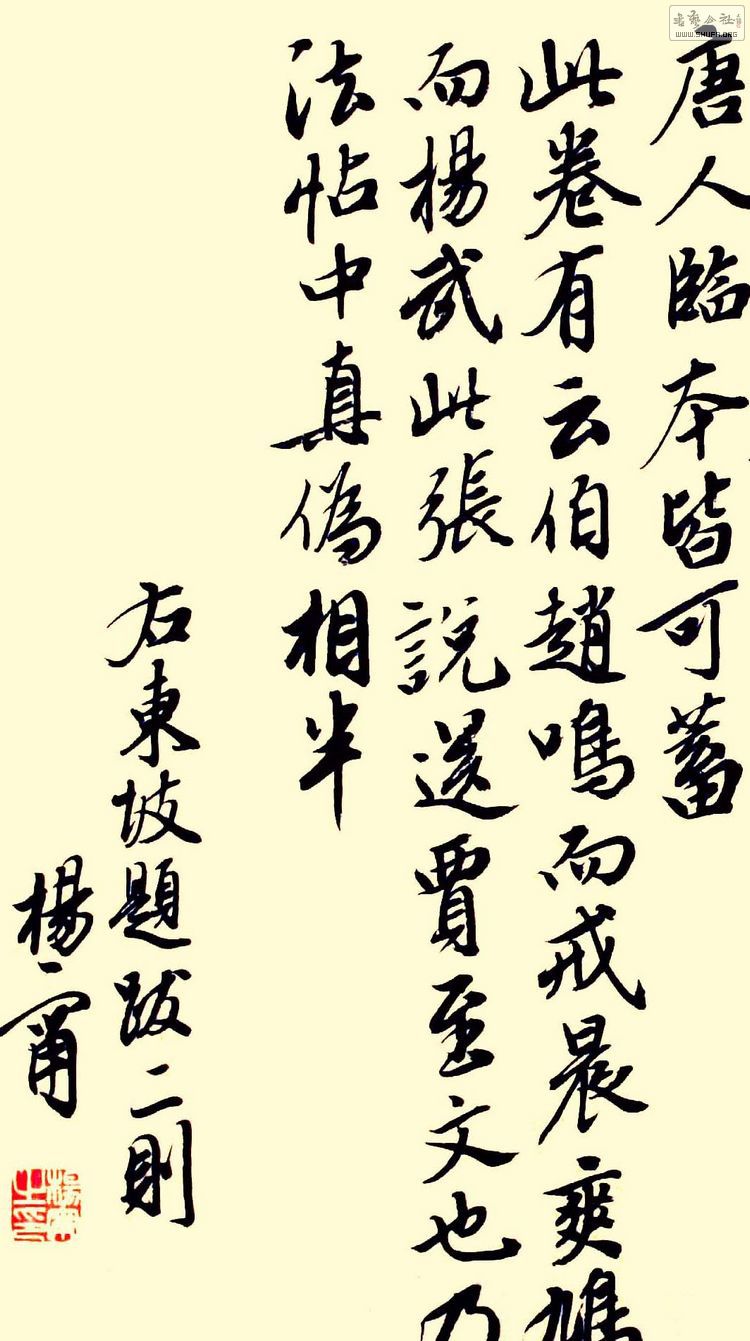 唐人臨本皆可蓄
此卷有云伯趙鳴而戒晨爽鳩
而楊武此張說送賈至文也乃
法帖中真偽相半
右東坡題跋二則
楊甯
WWW.SHUFA.ORG